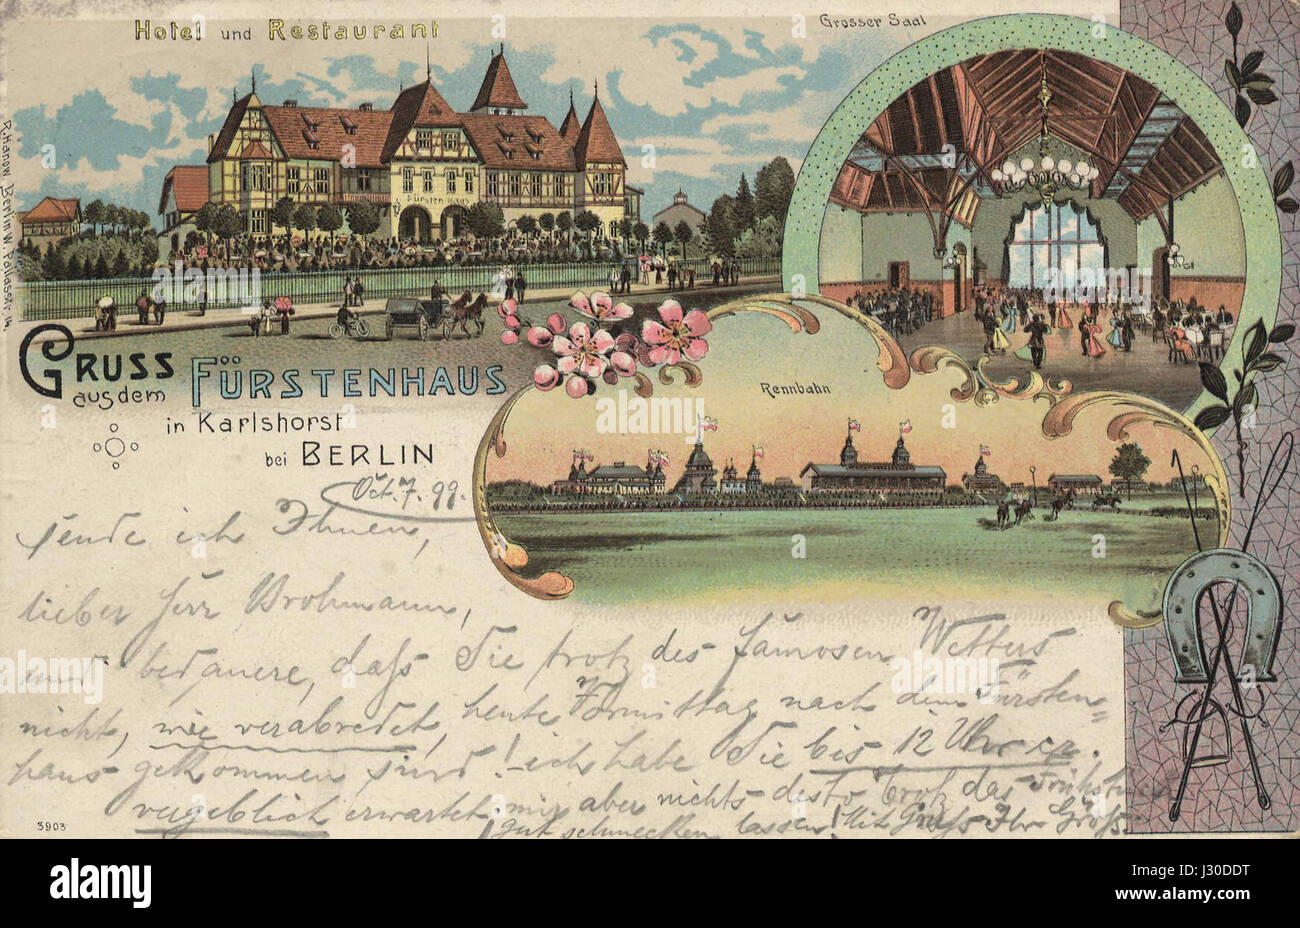 Hotel und Restaurant
Grosser Saal
R. Hanow Berlin W.
Fürstenhaus
Gruss
aus dem FÜRSTENHAUS
in Karlshorst
bei BERLIN
Rennbahn
Oct. 7. 99.
sende ich Ihnen,
lieber Herr Brohmann,
und bedauere, daß Sie trotz des famosen Wetters
nicht, wie verabredet, heute Vormittag nach dem Fürsten=
haus gekommen sind! ich habe Sie bis 12 Uhr ca.
vergeblich erwartet, mir aber nichts desto trotz das Frühstück
gut schmecken lassen! Mit Gruß Ihr
3903
alamy
alamy stock photo
J30DDT
www.alamy.com